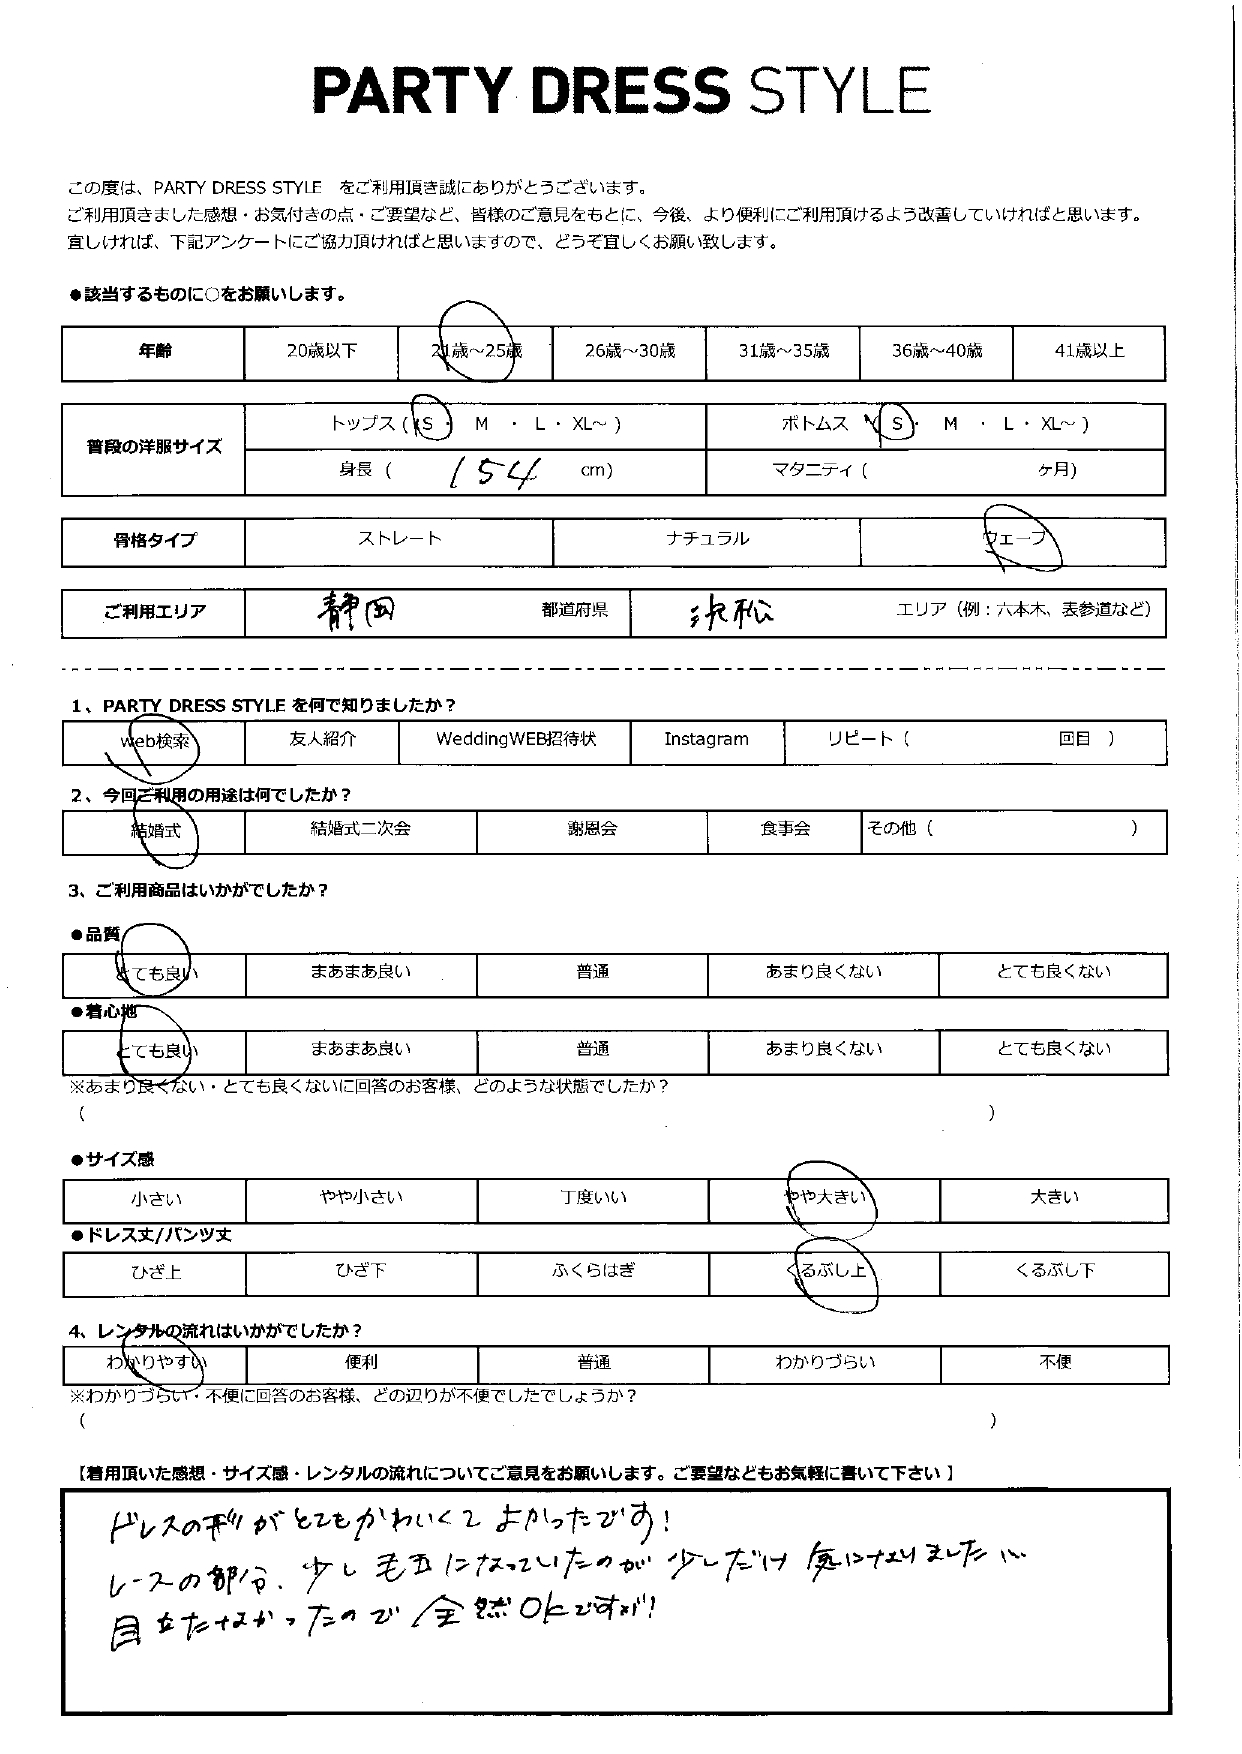 PARTY DRESS STYLE
この度は、PARTY DRESS STYLE をご利用頂き誠にありがとうございます。
ご利用頂きました感想・お気付きの点・ご要望など、皆様のご意見をもとに、今後、より便利にご利用頂けるよう改善していければと思います。
宜しければ、下記アンケートにご協力頂ければと思いますので、どうぞ宜しくお願い致します。
●該当するものに○をお願いします。
年齢 20歳以下 21歳～25歳 26歳～30歳 31歳～35歳 36歳～40歳 41歳以上
普段の洋服サイズ トップス ( S ・ M ・ L ・ XL～ ) ボトムス ( S ・ M ・ L ・ XL～ )
身長 ( 154 cm) マタニティ ( ヶ月)
骨格タイプ ストレート ナチュラル ウェーブ
ご利用エリア 静岡 都道府県 浜松 エリア（例：六本木、表参道など）
1、PARTY DRESS STYLE を何で知りましたか？
web検索 友人紹介 WeddingWEB招待状 Instagram リピート ( 回目 )
2、今回ご利用の用途は何でしたか？
結婚式 結婚式二次会 謝恩会 食事会 その他 ( )
3、ご利用商品はいかがでしたか？
●品質
とても良い まあまあ良い 普通 あまり良くない とても良くない
●着心地
とても良い まあまあ良い 普通 あまり良くない とても良くない
※あまり良くない・とても良くないに回答のお客様、どのような状態でしたか？
( )
●サイズ感
小さい やや小さい 丁度いい やや大きい 大きい
●ドレス丈/パンツ丈
ひざ上 ひざ下 ふくらはぎ くるぶし上 くるぶし下
4、レンタルの流れはいかがでしたか？
わかりやすい 便利 普通 わかりづらい 不便
※わかりづらい・不便に回答のお客様、どの辺りが不便でしたでしょうか？
( )
【着用頂いた感想・サイズ感・レンタルの流れについてご意見をお願いします。ご要望などもお気軽に書いて下さい 】
ドレスの形がとてもかわいくてよかったです!
レースの部分、少し毛玉になっていたのが少しだけ気になりました
目立たなかったので全然OKですが!